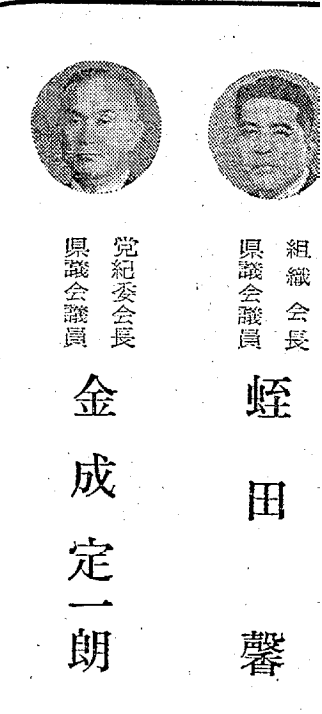 組織会長
県議会議員
蛭田馨
党紀委会長
県議会議員
金成定一朗